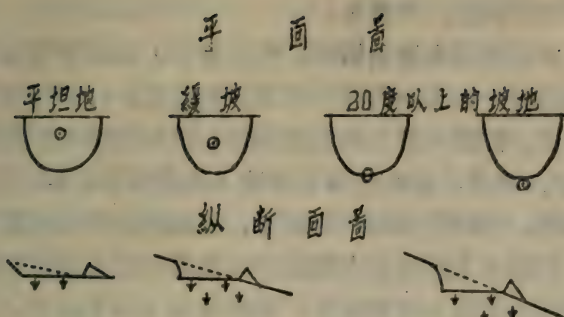 平面啚
平坦地 緩坡 20度以上的坡地
纵断面啚